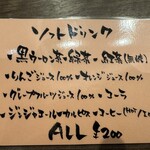 ソフトドリンク
・黒ウーロン茶・緑茶・紅茶(無糖)
・りんごジュース100%・オレンジジュース100%
・グレープフルーツジュース100%・コーラ
・ジンジャエール・カルピス・コーヒー(Hot/アイス)
ALL ¥200